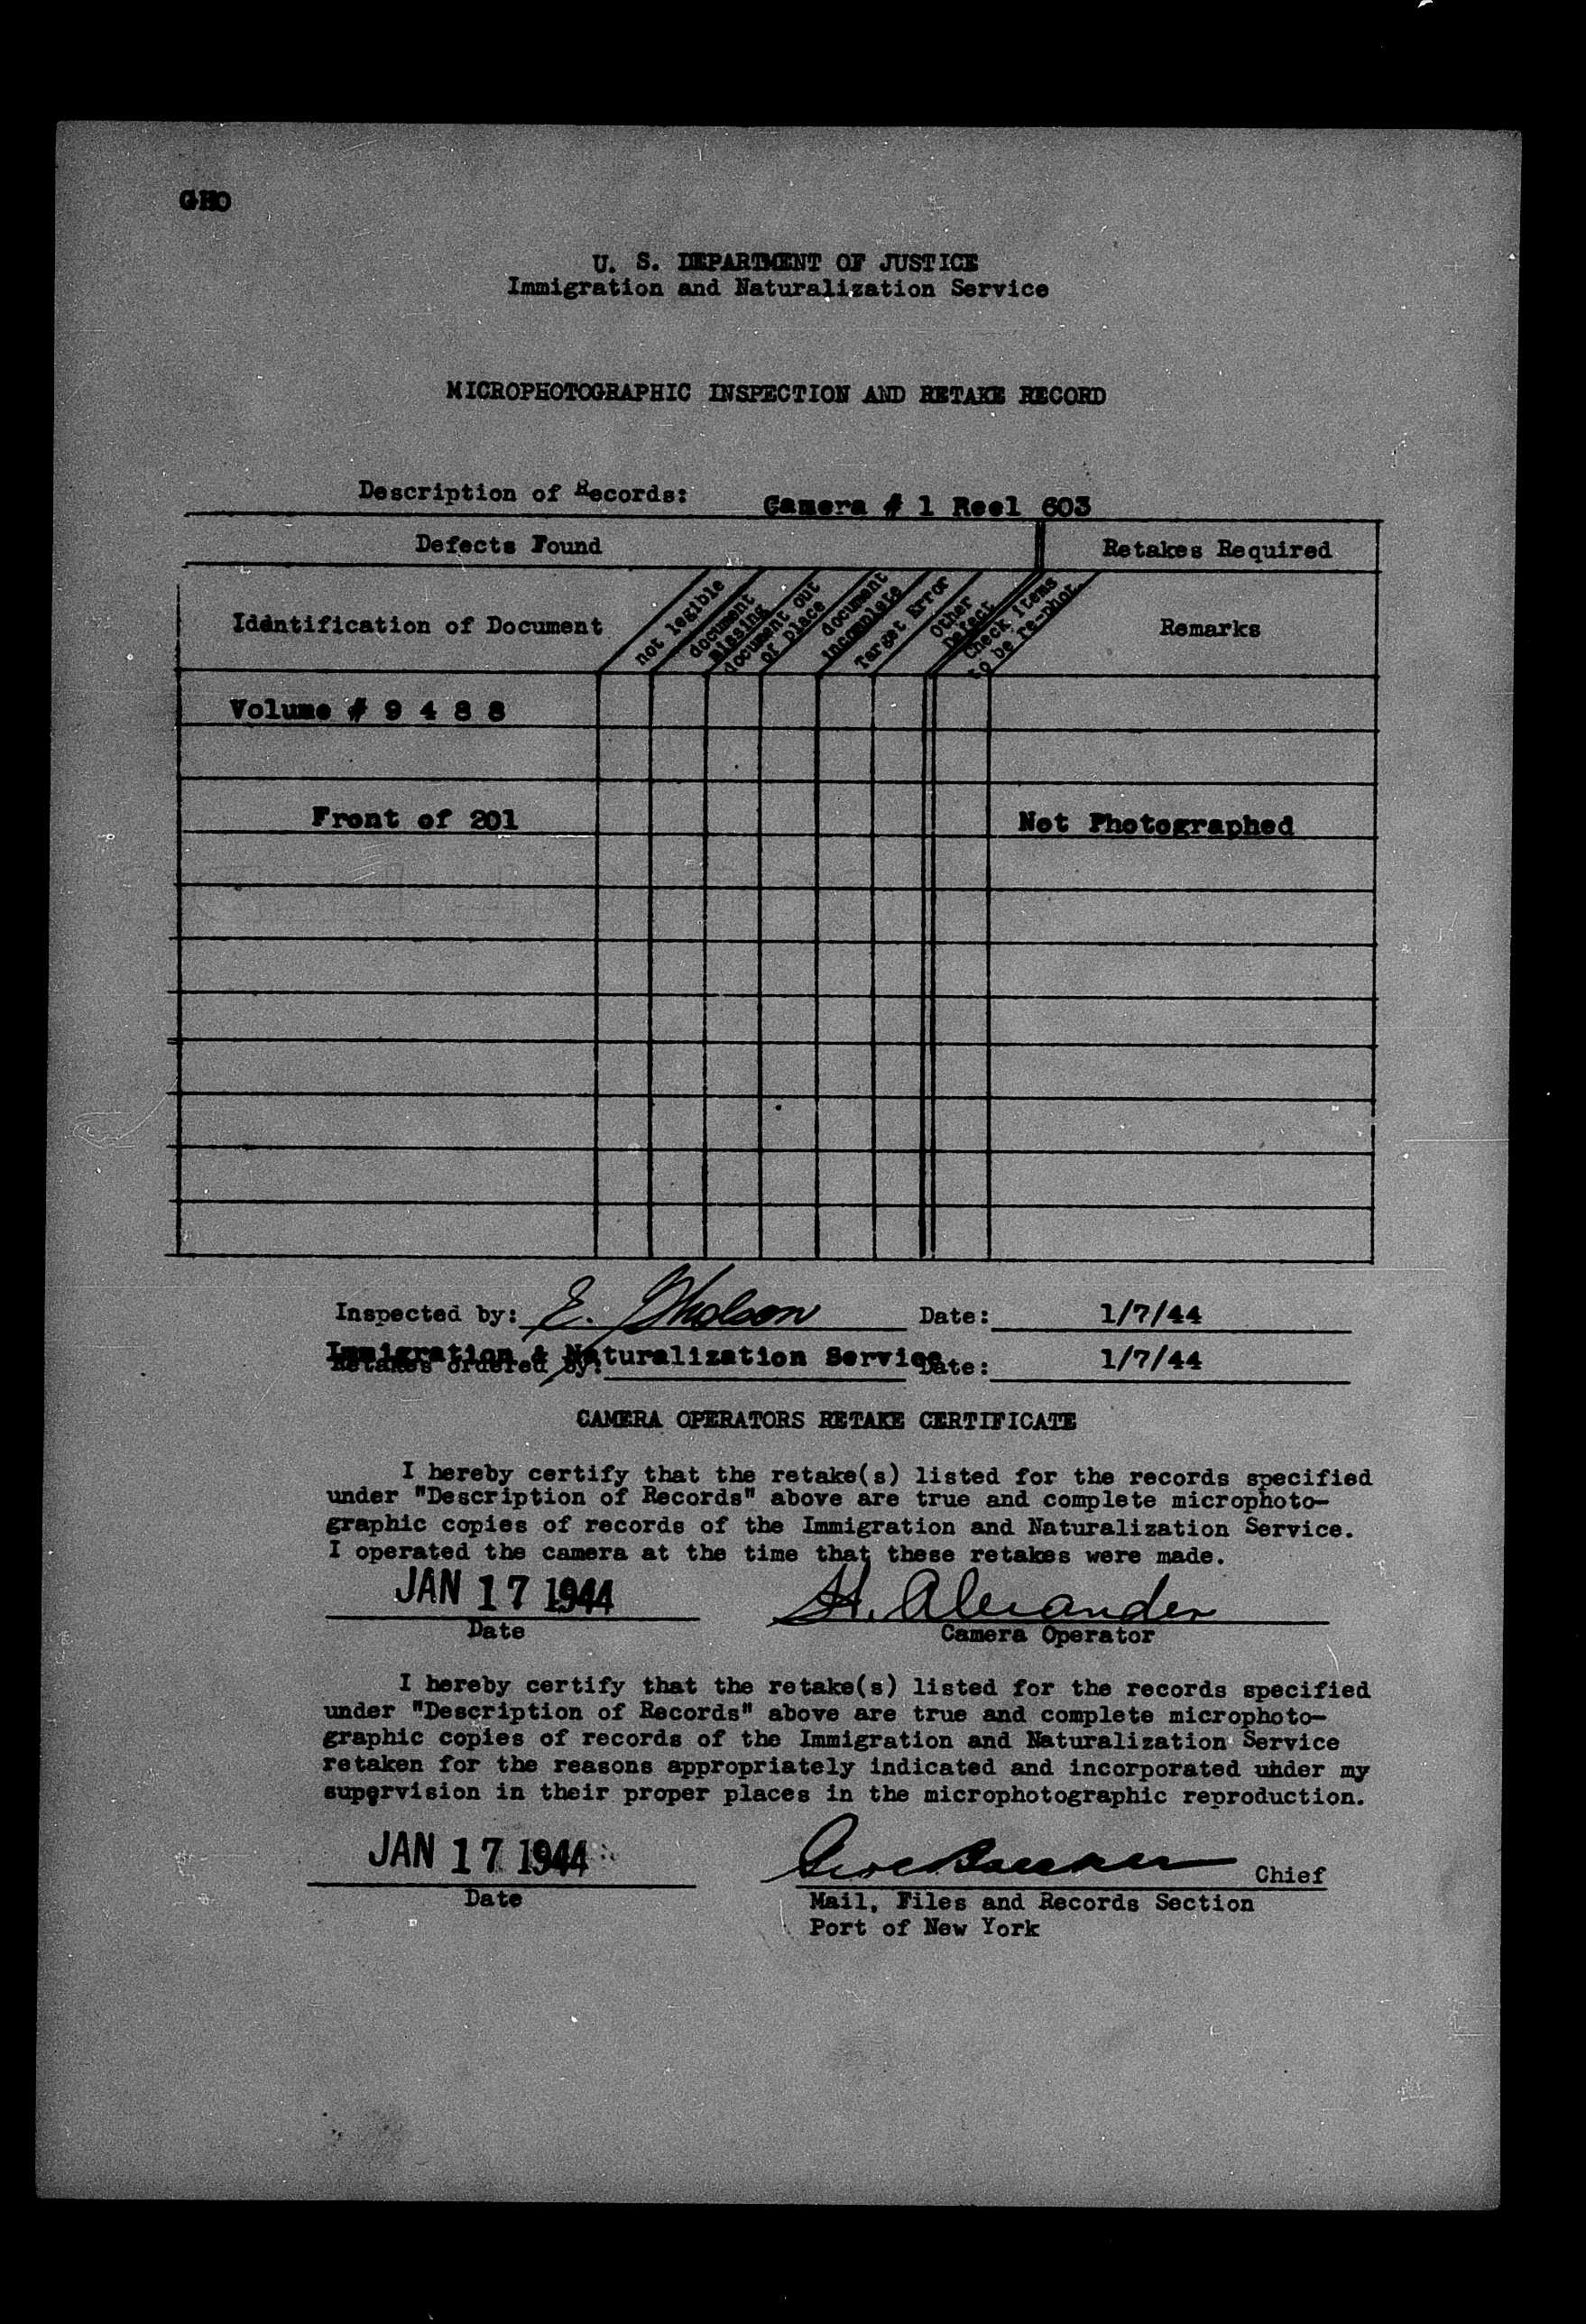 GHO
U. S. DEPARTMENT OF JUSTICE
Immigration and Naturalization Service
MICROPHOTOGRAPHIC INSPECTION AND RETAKE RECORD
Description of Records: Camera # 1 Reel 603
Defects Found Retakes Required
Identification of Document
not legible
document
missing
document out
of place
document
incomplete
Target Error
Other
Defect
Check items
to be re-phot.
Remarks
Volume # 9 4 8 8
Front of 201 Not Photographed
Inspected by: E. Date: 1/7/44
Immigration & Naturalization Service
Retakes ordered by: Date: 1/7/44
CAMERA OPERATORS RETAKE CERTIFICATE
I hereby certify that the retake(s) listed for the records specified
under "Description of Records" above are true and complete microphoto-
graphic copies of records of the Immigration and Naturalization Service.
I operated the camera at the time that these retakes were made.
JAN 17 1944 H. Alexander
Date Camera Operator
I hereby certify that the retake(s) listed for the records specified
under "Description of Records" above are true and complete microphoto-
graphic copies of records of the Immigration and Naturalization Service
retaken for the reasons appropriately indicated and incorporated under my
supervision in their proper places in the microphotographic reproduction.
JAN 17 1944 Chief
Date Mail, Files and Records Section
Port of New York